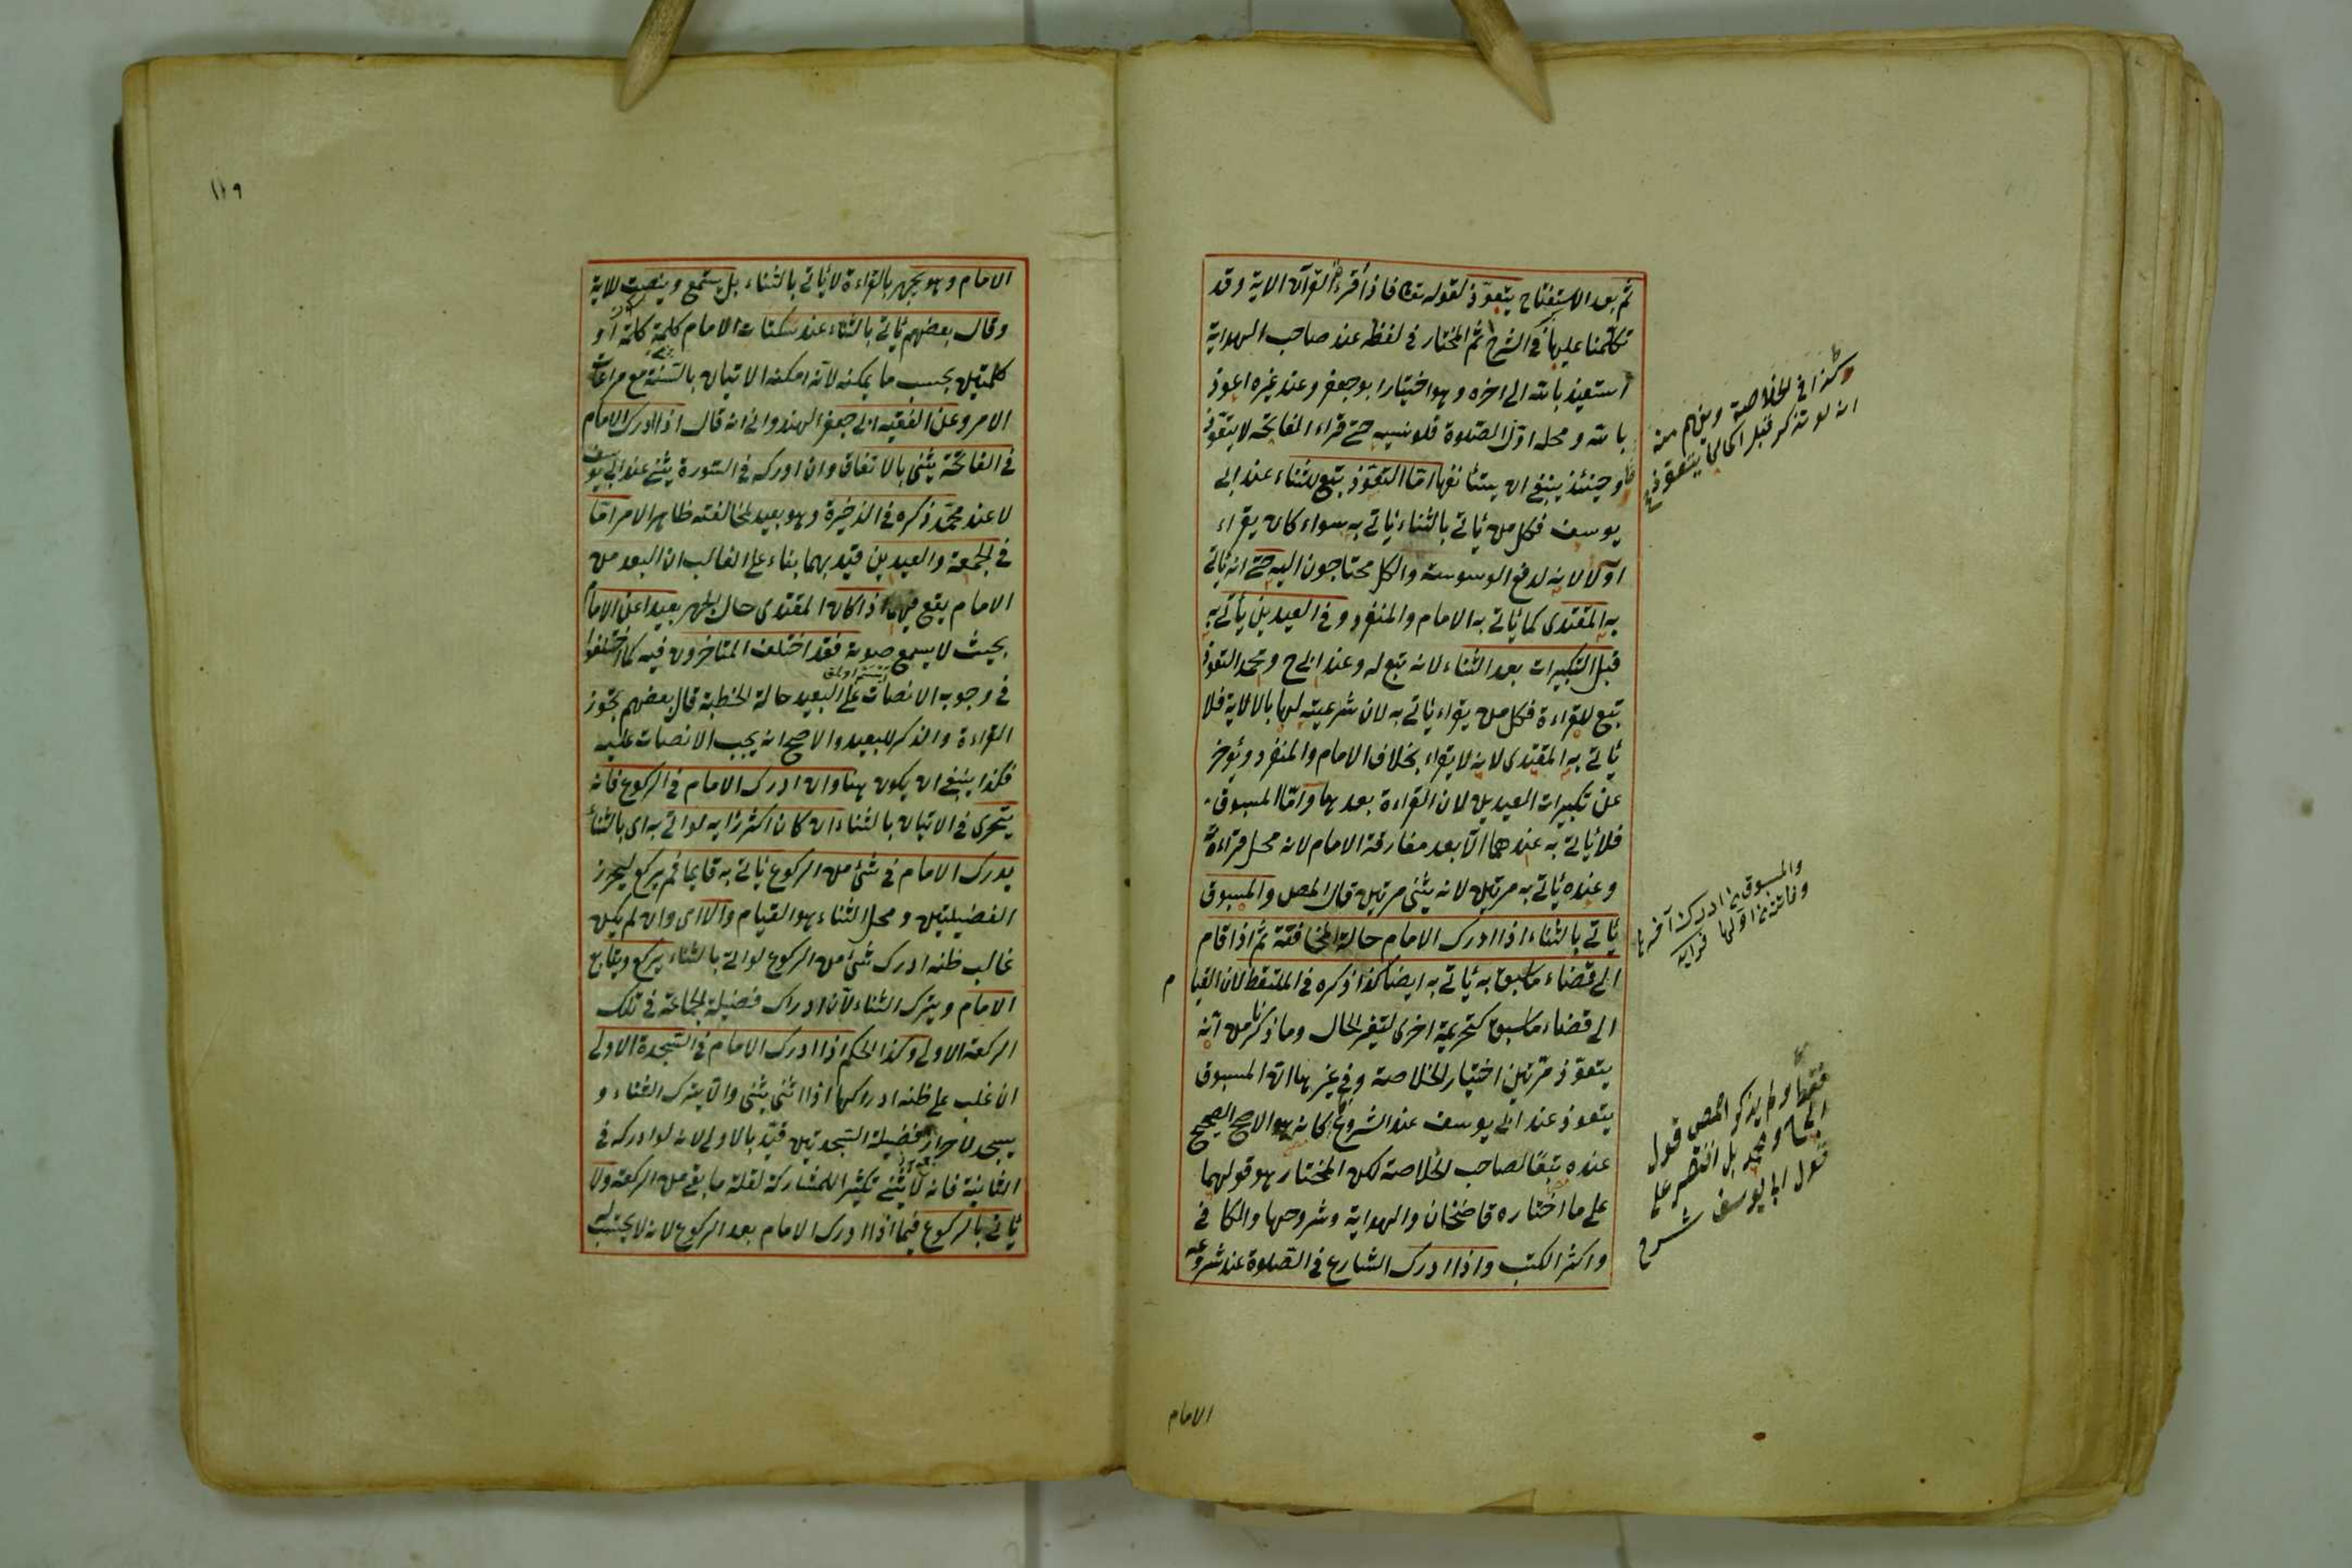 ثم بعد الاستفتاح يتعوذ لقوله تعا فاذا قرءت القرآن الاية وقد
تكلمنا عليها في الشرح ثم المختار في لفظه عند صاحب الهداية
استعيذ بالله الى اخره وهو اختيار ابو جعفر وعند غيره اعوذ
بالله ومحله اوّل الصلوة فلو نسيه حتى قراء الفاتحة لا يتعوذ
وحينئذ ينبغي ان يستأنفها امّا التعوّذ تبع للثناء عند ابى
يوسف فكل من يأتي بالثناء يأتي به سواء كان يقراء
اوّلا لانه لدفع الوسوسة والكل محتاجون اليه حتى انه يأتي
به المقتدى كما يأتي به الامام والمنفرد وفي العيدين يأتي به
قبل التكبيرات بعد الثناء لانه تبع له وعند ابى ح ومحمد التعوذ
تبع للقراءة فكل من يقراء يأتي به لان شرعيته لها بالاية فلا
يأتي به المقتدى لانه لا يقراء بخلاف الامام والمنفرد ويؤخر
عن تكبيرات العيدين لان القراءة بعدها وامّا المسبوق
فلا يأتي به عندهما الّا بعد مفارقة الامام لانه محل قراءته
وعنده يأتي به مرتين لانه يثنى مرتين قال المص والمسبوق
يأتي بالثناء اذا ادرك الامام حالة المخافتة ثم اذا قام
الى قضاء ما سبق به يأتي به ايضا كذا ذكره في الملتقط لان القيا م
الى قضاء ما سبق كتحريمة اخرى لتغير الحال وما ذكرنا من انه
يتعوّذ مرّتين اختيار الخلاصة وفي غيرها ان المسبوق
يتعوذ عند ابى يوسف عند الشروع كانه هو الاصح الصحيح
عنده تبعا لصاحب الخلاصة لكن المختار هو قولهما
على ما اختاره قاضيخان والهداية وشروحها والكافي
واكثر الكتب واذا ادرك الشارع في الصلوة عند شروعه
وكذا في الخلاصة ويفهم منه
انه لو تذكر قبل اكمالها يتعوذ
والمسبوق من ادرك آخرها
وفاتته من اولها
فقها ولم يذكر المص قول
ابى ح ومحمد بل اقتصر على
قول ابى يوسف شرح
الامام
١١٩
الامام وهو يجهر بالقراءة لا يأتي بالثناء بل يستمع وينصت للاية
وقال بعضهم يأتي بالثناء عند سكتات الامام كلمة كلمة او
كلمتين بحسب ما يمكنه لانه امكنه الاتيان بالسّنة مع مراعات
الامر وعن الفقيه ابى جعفر الهندوانى انه قال اذا ادرك الامام
في الفاتحة يثنى بالاتفاق وان ادركه في السّورة يثنى عند ابى يوسف
لا عند محمّد ذكره في الذخيرة وهو بعيد لمخالفته ظاهر الامر امّا
في الجمعة والعيدين قيّد بهما بناء على الغالب ان البعد من
الامام يقع فيهما اذا كان المقتدى حال الجهر بعيدا عن الامام
بحيث لا يسمع صوته فقد اختلف المتاخرون فيه كما اختلفوا
في وجوب الانصات على البعيد حالة الخطبة قال بعضهم يجوز
القراءة والذكر للبعيد والاصح انه يجب الانصات عليه
فكذا ينبغي ان يكون هنا وان ادرك الامام في الركوع فانه
يتحرى في الاتيان بالثناء ان كان اكثر رأيه لو اتى به اى بالثناء
يدرك الامام في شئ من الركوع يأتي به قايما ثم يركع ليحرز
الفضيلتين ومحل الثناء هو القيام والّا اى وان لم يكن
غالب ظنه ادرك شئ من الركوع لو اتى بالثناء يركع ويتابع
الامام ويترك الثناء لان ادراك فضيلة الجماعة في تلك
الركعة الاولى وكذا الحكم اذا ادرك الامام في السّجدة الاولى
ان غلب على ظنه ادراكها اذا اثنى يثنى والّا يترك الثناء و
يسجد لاحراز فضيلة السّجدتين قيّد بالاولى لانه لو ادركه في
الثانية فانه لا يثنى تكثيرا للمشاركة لقلة ما بقى من الركعة ولا
يأتي بالركوع فيما اذا ادرك الامام بعد الركوع لانه لا يحتسب له